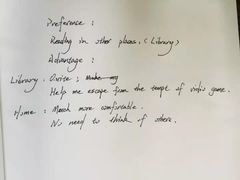 Preference :
Reading in other places. (Library)
Advantage :
Library : Quite ;
Help me escape from the tempt of vidio game.
Home : Much more comfortable.
No need to think of others.